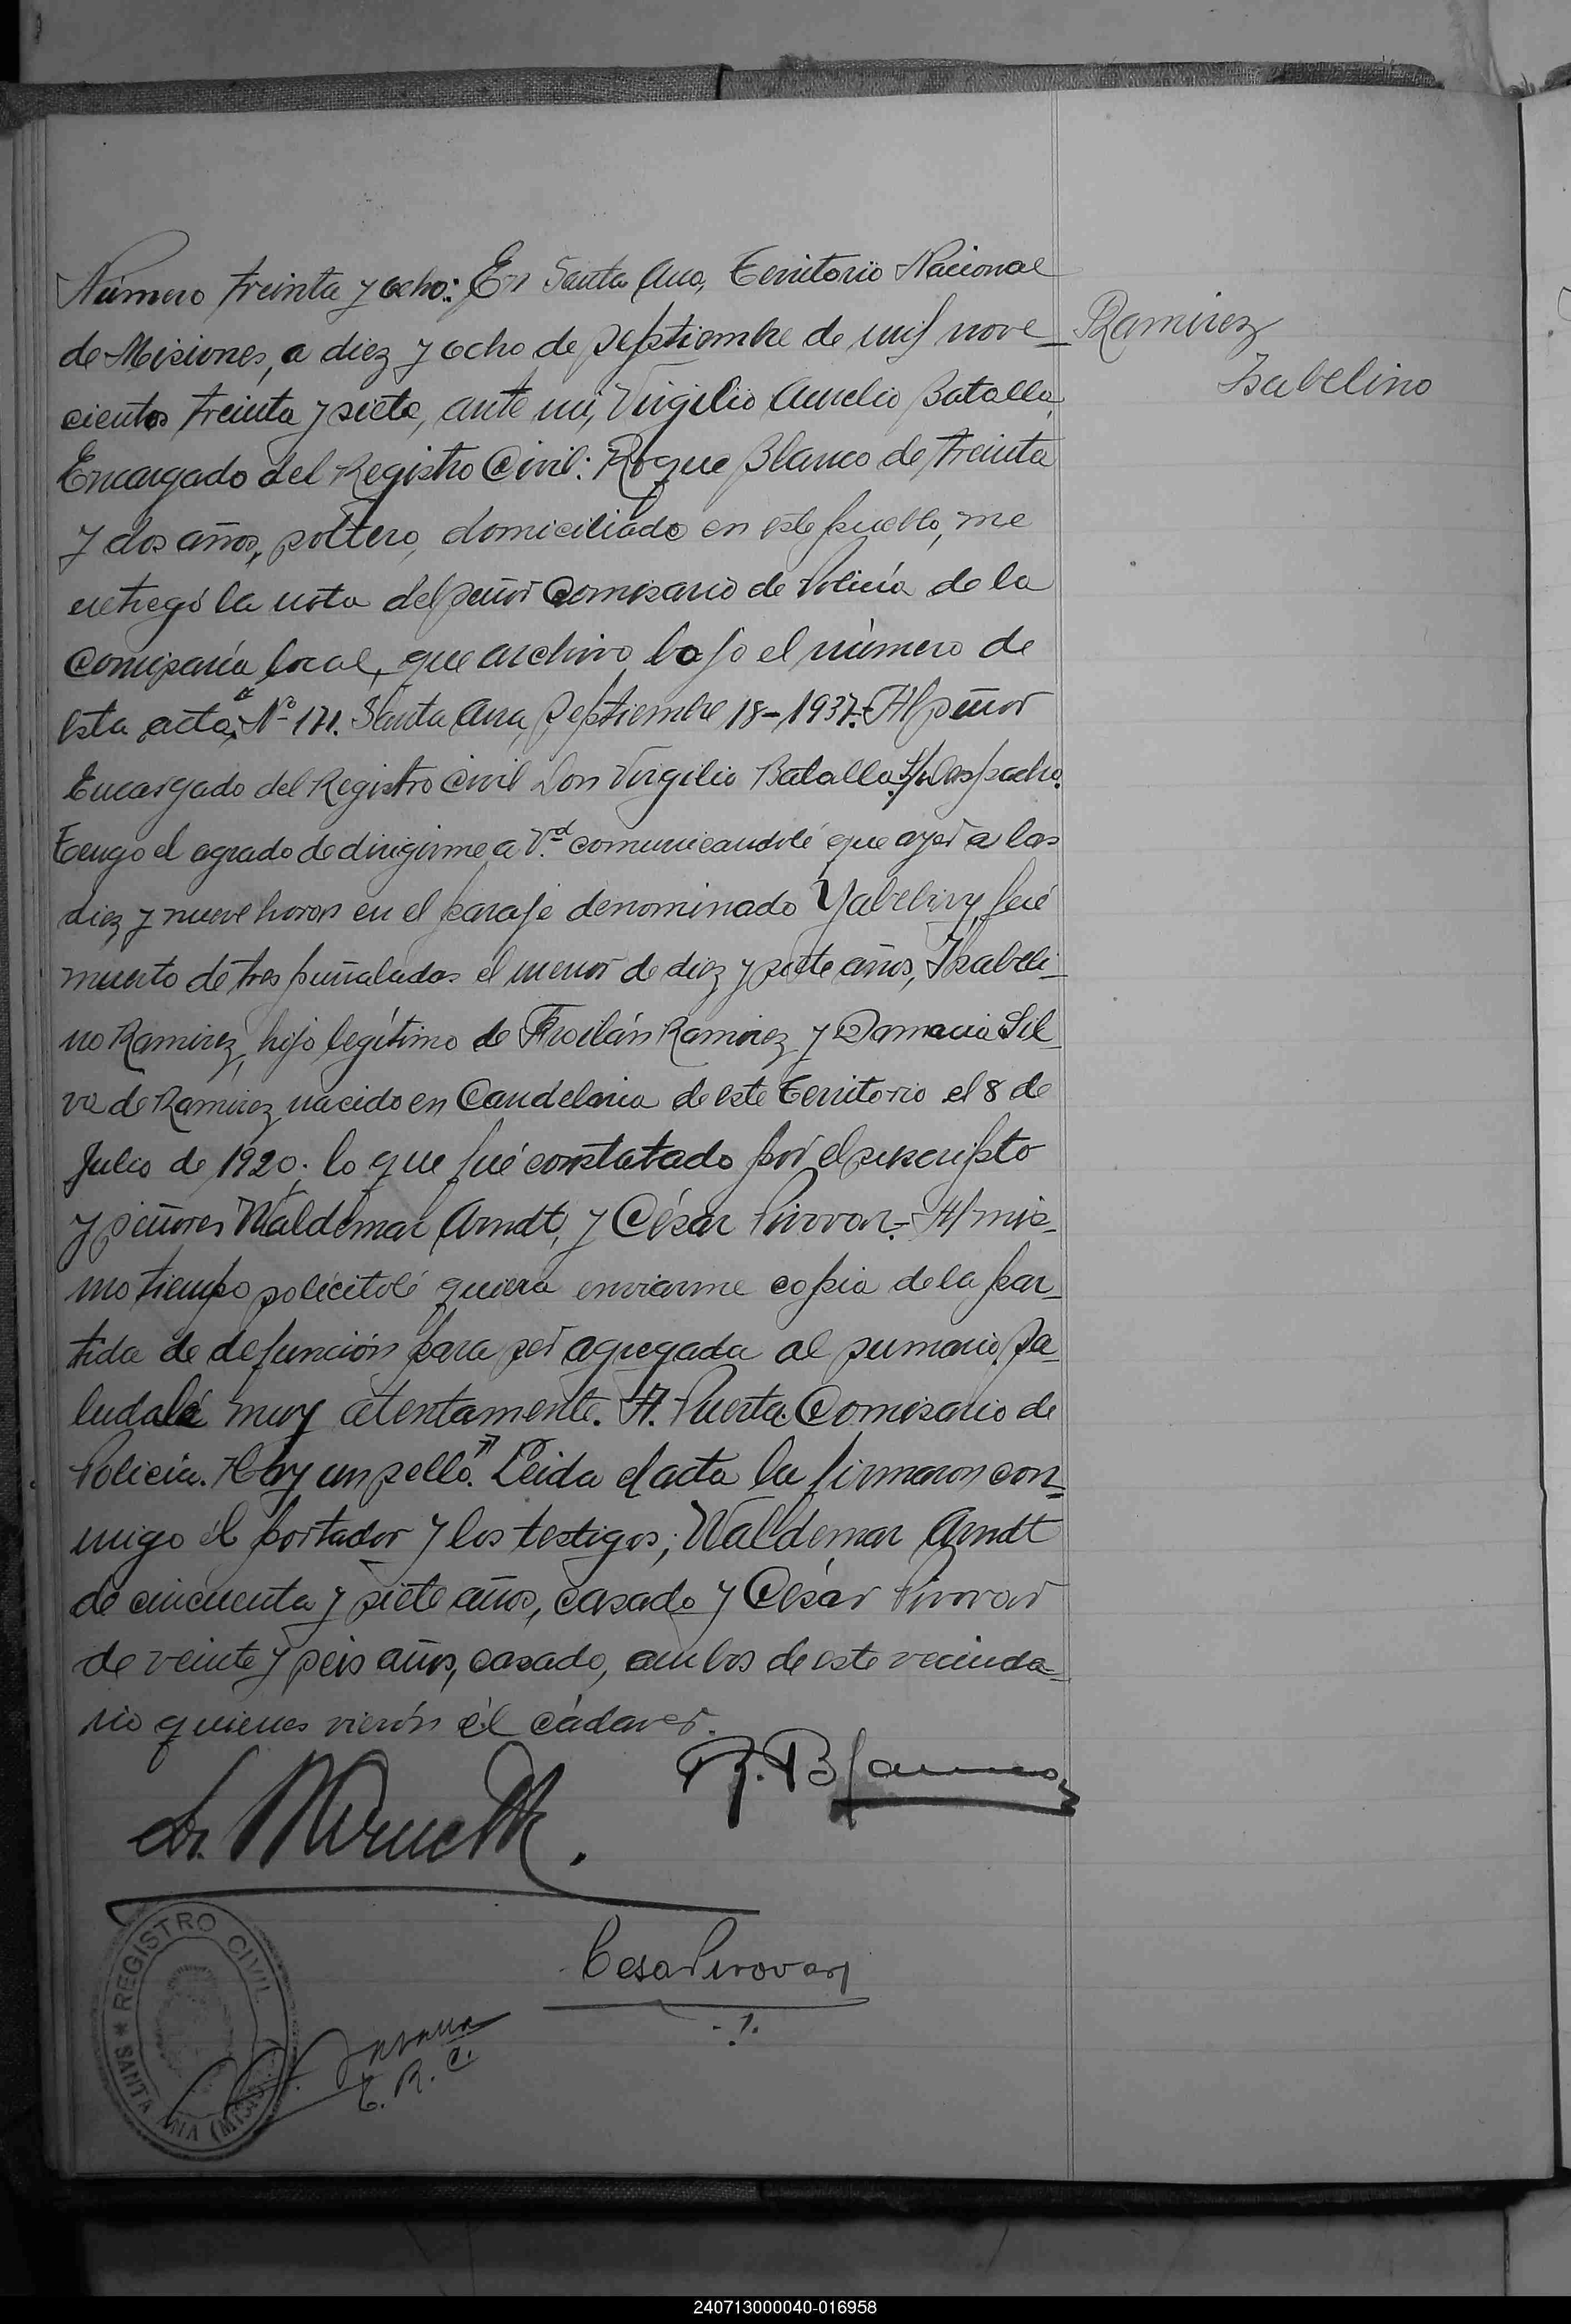 Número treinta y ocho: En Santa Ana, Territorio Nacional
de Misiones, a diez y ocho de septiembre de mil nove-
cientos treinta y siete, ante mí, Virgilio Aurelio Batalla,
Encargado del Registro Civil: Roque Blanco de treinta
y dos años, soltero, domiciliado en este pueblo, me
entregó la nota del señor Comisario de Policía de la
Comisaría local, que archivo bajo el número de
esta acta: "Nº 171. Santa Ana, septiembre 18-1937.- Al señor
Encargado del Registro Civil Don Virgilio Batalla. S/despacho.
Tengo el agrado de dirigirme a Vd. comunicandolé que ayer a las
diez y nueve horas en el paraje denominado Yabebiry, fué
muerto de tres puñaladas el menor de diez y siete años, Isabeli-
no Ramirez, hijo legítimo de Froilán Ramirez y Damacia Sil-
va de Ramirez, nacido en Candelaria de este Territorio el 8 de
Julio de 1920; lo que fué constatado por el suscripto
y señores Waldemar Arndt, y César Pirovar.- Al mis-
mo tiempo solicitolé quiera enviarme copia de la par-
tida de defunción para ser agregada al sumario. Sa-
ludalé muy atentamente. A. Puerta. Comisario de
Policía. Hay un sello." Leida el acta la firmaron con-
migo el portador y los testigos; Waldemar Arndt
de cincuenta y siete años, casado y César Pirovar
de veinte y seis años, casado, ambos de este vecinda-
rio quienes vierón él cádaver.
Ramirez
Isabelino
R. Blanco
Cesar Pirovar
E. R. C.
REGISTRO CIVIL
* SANTA ANA (MIS
240713000040-016958